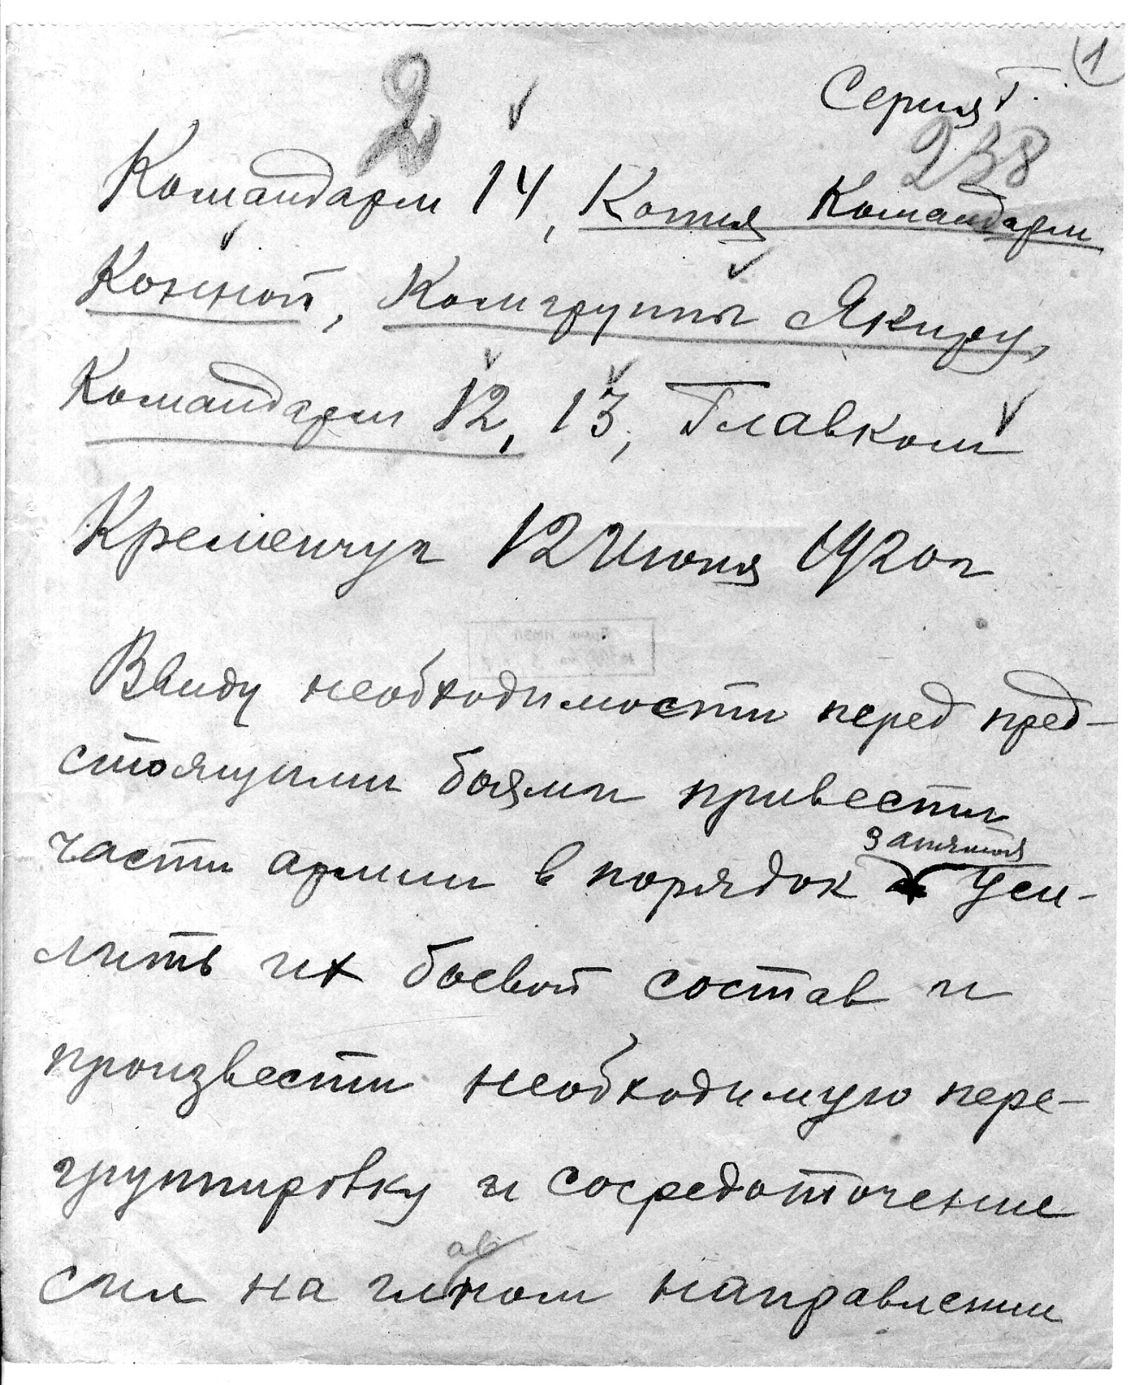 1
2
Серия Г.
238
Командарм 14, Копия Командарм
Конной, Комгруппы Якиру,
Командарм 12, 13, Главком
Кременчуг 12 Июня 1920 г
Ввиду необходимости перед пред-
стоящими боями привести
части армии в порядок запятая Уси-
лить их боевой состав и
произвести необходимую пере-
группировку и сосредоточение
сил на главном направлении